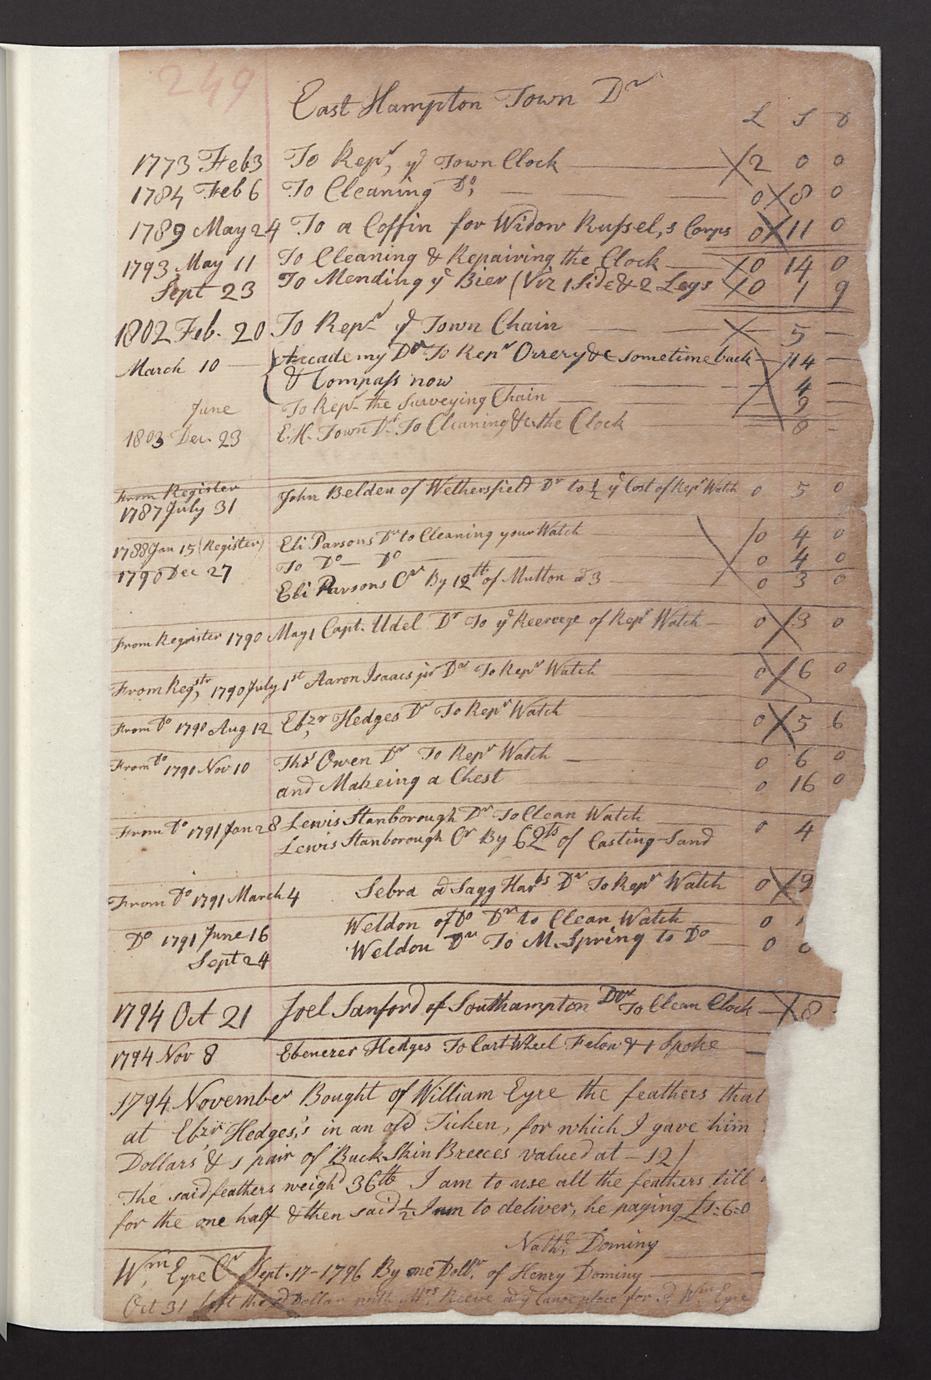 249
East Hampton Town Dr
£ S D
1773 Feb 3 To Repr, ye Town Clock 2 0 0
1784 Feb 6 To Cleaning Do, 0 8 0
1789 May 24 To a Coffin for Widow Russel,s Corps 0 11 0
1793 May 11 To Cleaning & Repairing the Clock 0 14 0
Sept 23 To Mending ye Bier (Viz 1 Side & 2 Legs 0 1 9
1802 Feb. 20 To Repr ye Town Chain 5
March 10 Accademy Dr To Repr Orrery &c sometime back 14
& Compass now 4
June To Repr the Surveying Chain 9
1803 Dec. 23 E.H. Town Dr To Cleaning &c the Clock 8
From Register
1787 July 31 John Belden of Wethersfield Dr to ½ ye Cost of Repr Watch 0 5 0
1788 Jan 15 (Register) Eli Parsons Dr to Cleaning your Watch 0 4 0
1790 Dec 27 To Do Do 0 4 0
Eli Parsons Cr By 12lb of Mutton @ 3 0 3 0
From Register 1790 May 1 Capt. Udel Dr To ye of Repr Watch 0 3 0
From Regstr, 1790 July 1st Aaron Isaacs jur Dr To Repr Watch 0 6 0
From Do 1790 Aug 12 Ebzr Hedges Dr To Repr Watch 0 5 6
From Do 1790 Nov 10 Ths Owen Dr To Repr Watch 0 6 0
and Makeing a Chest 0 16 0
From Do 1791 Jan 28 Lewis Stanborough Dr To Clean Watch 0 4
Lewis Stanborough Cr By 62lbs of Casting Sand
From Do 1791 March 4 Sebra @ Sagg Harbs Dr To Repr Watch 0 9
Do 1791 June 16 Weldon of Do Dr to Clean Watch 0
Sept 24 Weldon Dr To M. Spring to Do 0
1794 Oct 21 Joel Sanford of Southampton Dr To Clean Clock 8
1794 Nov 8 Ebenezer Hedges To Cart Wheel Felow & 1 Spoke
1794 November Bought of William Eyre the feathers that
at Ebzr Hedges's in an old Ticken, for which I gave him
Dollars & 1 pair of Buck Skin Breeces valued at - 12/
The said feathers weighd 36lb I am to use all the feathers till
for the one half & then said ½ I am to deliver, he paying £1:6:0
Nathl Dominy
Wm, Eyre Cr Sept. 17 - 1796 By one Dollr. of Henry Dominy
Oct 31 left the sd Dollar with Mrs Reeve at ye place for sd Wm Eyre